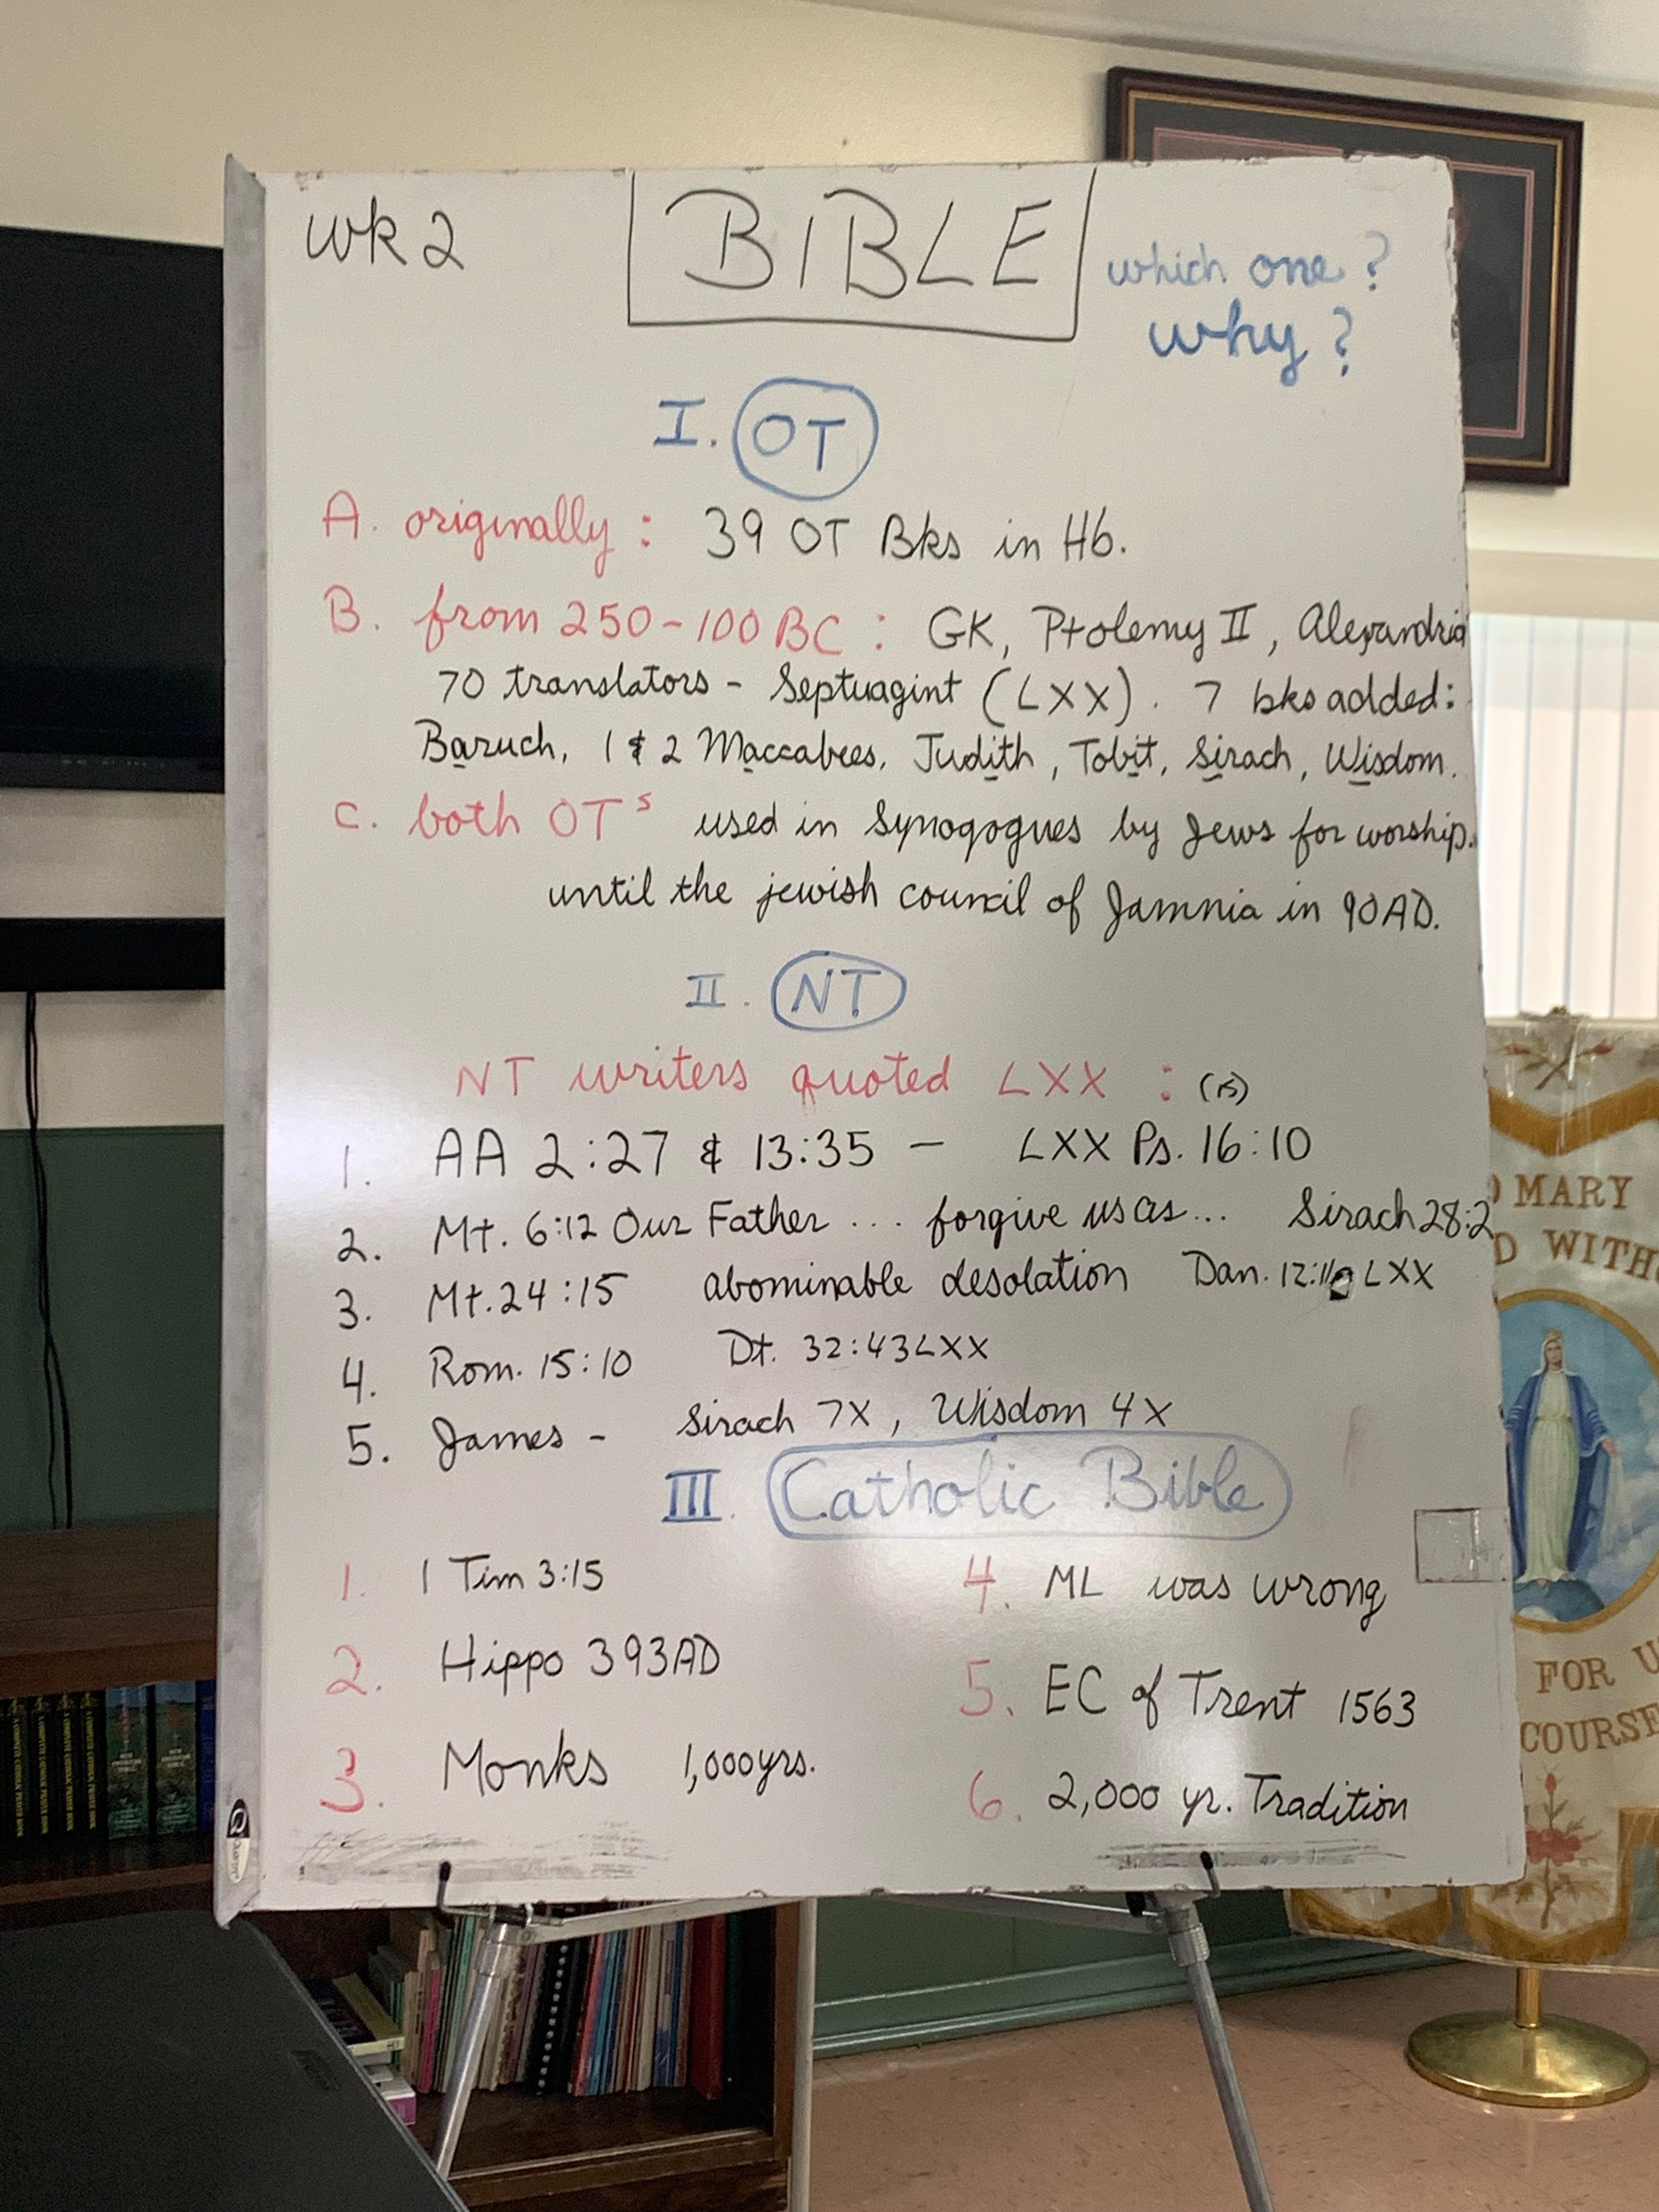 wk 2
BIBLE
which one?
why?
I. OT
A. originally: 39 OT Bks in Hb.
B. from 250-100 BC: GK, Ptolemy II, Alexandria
70 translators - Septuagint (LXX). 7 bks added:
Baruch, 1 & 2 Maccabees, Judith, Tobit, Sirach, Wisdom.
C. both OTs used in Synogogues by Jews for worship.
until the jewish council of Jamnia in 90AD.
II. NT
NT writers quoted LXX: (15)
1. AA 2:27 & 13:35 - LXX Ps. 16:10
2. Mt. 6:12 Our Father ... forgive us as... Sirach 28:2
3. Mt. 24:15 abominable desolation Dan. LXX
4. Rom. 15:10 Dt. 32:43 LXX
5. James - Sirach 7X, Wisdom 4X
III. Catholic Bible
1. 1 Tim 3:15
2. Hippo 393AD
3. Monks 1,000yrs.
4. ML was wrong
5. EC of Trent 1563
6. 2,000 yr. Tradition
MARY
D WITH
FOR U
COURSE